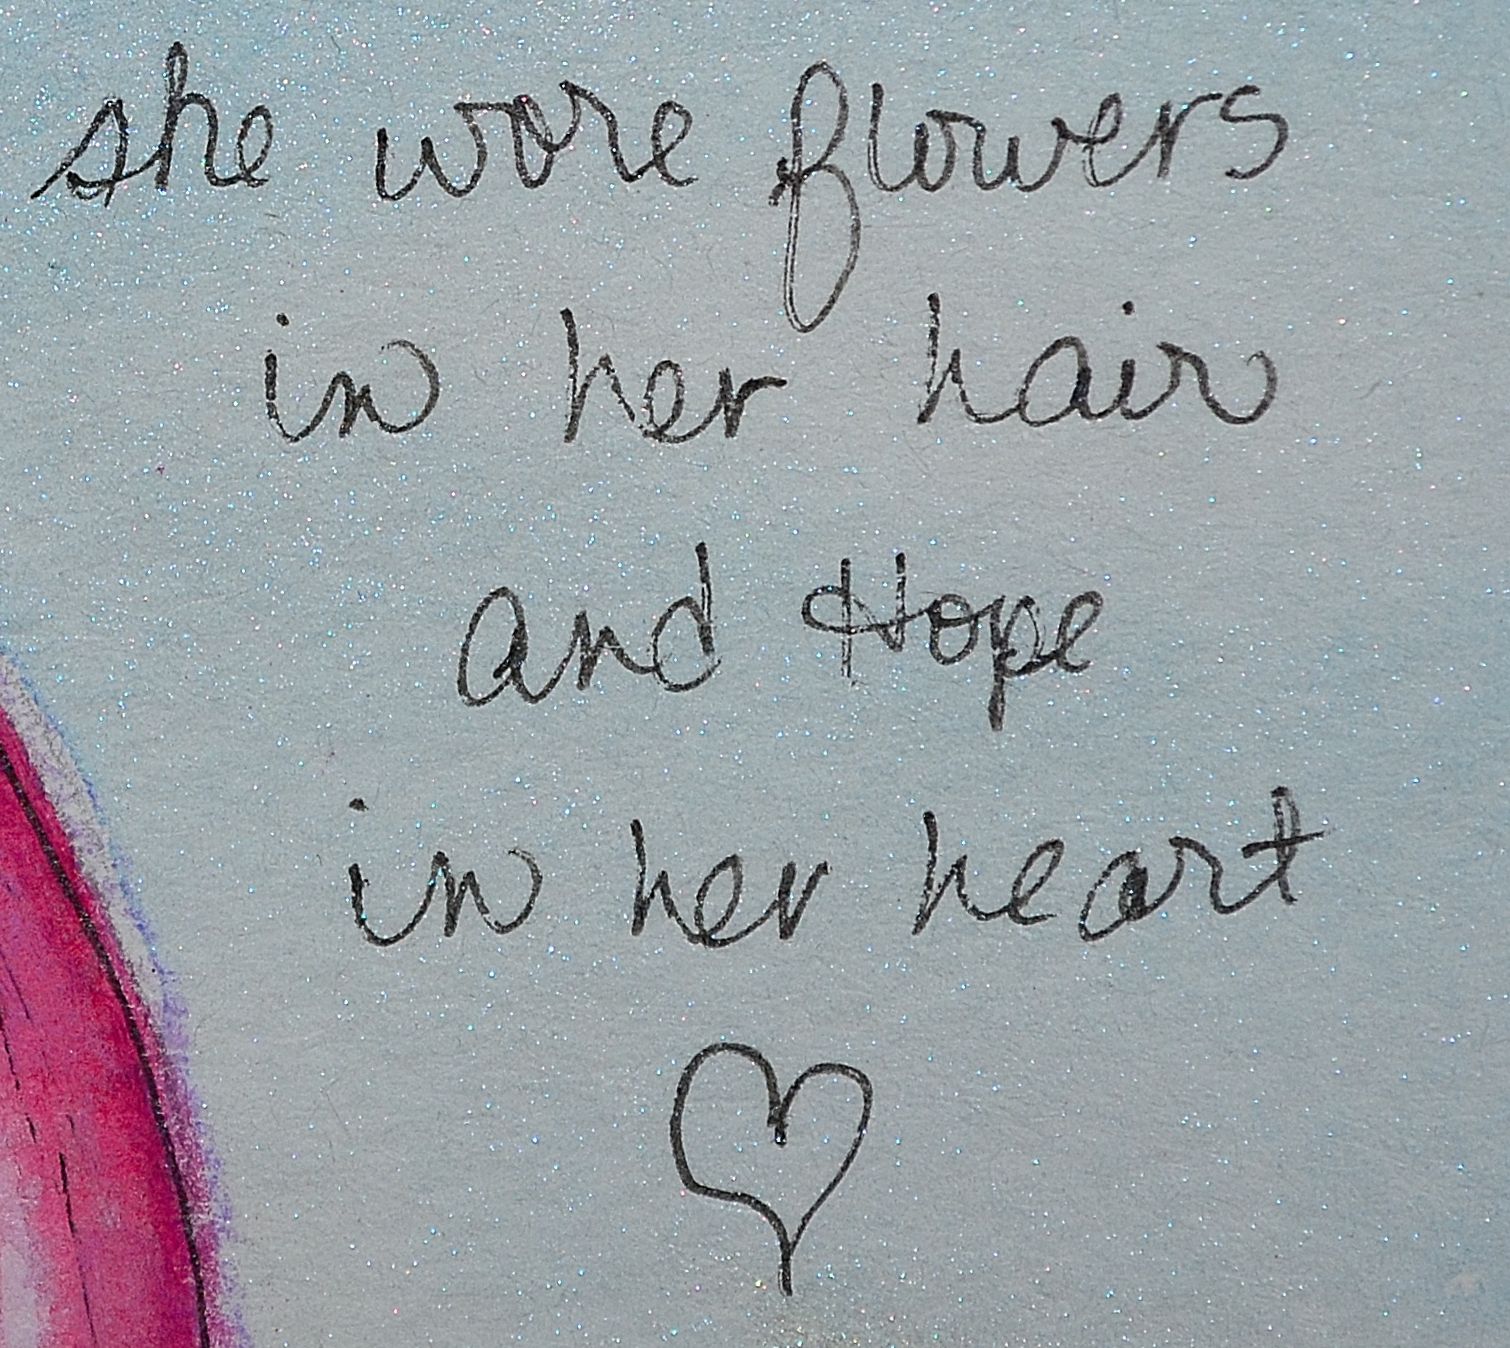 she wore flowers
in her hair
and Hope
in her heart